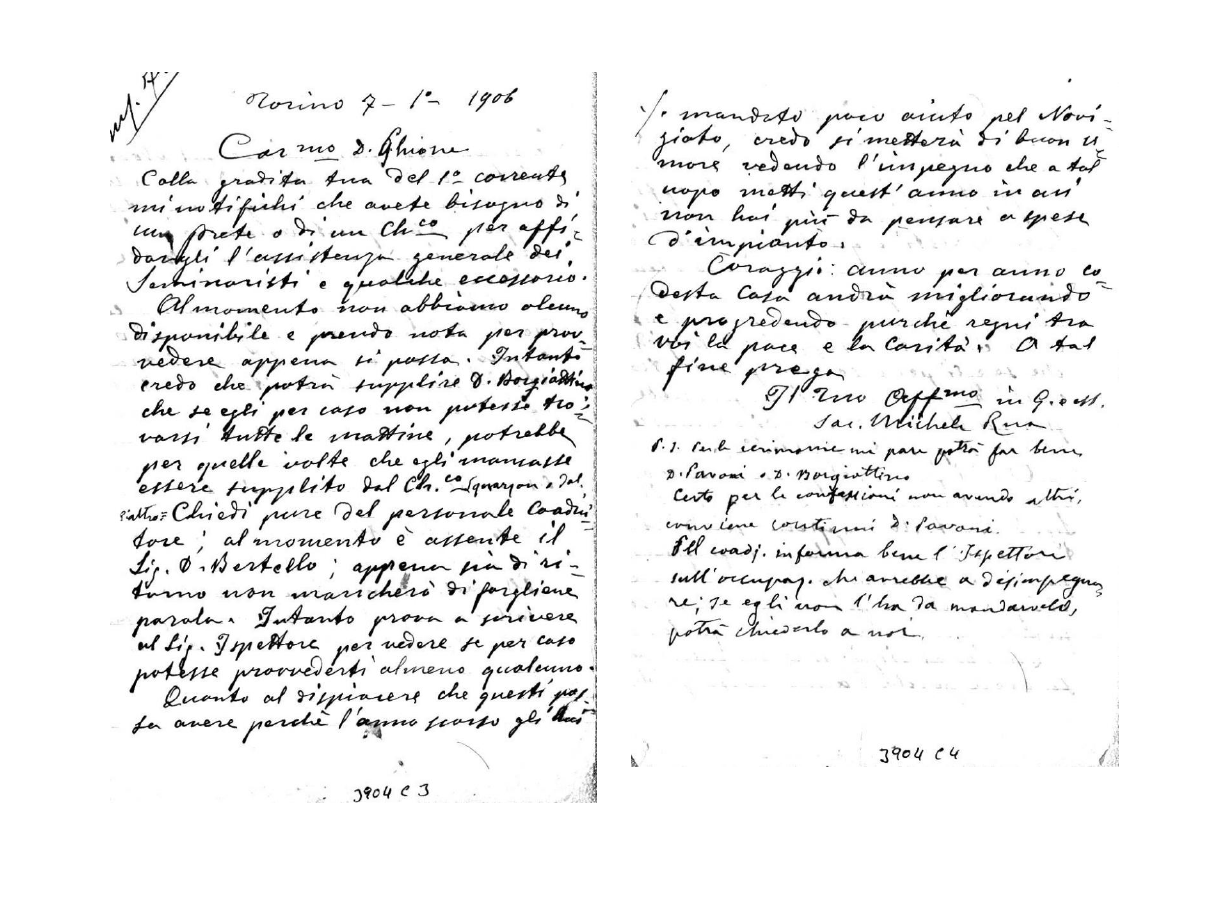 Torino 7 - 1º - 1906
Car mo D. Ghione
Colla gradita tua del 1º corrente
mi notifichi che avete bisogno di
un prete o di un Ch.co per affi-
dargli l'assistenza generale dei
Seminaristi e qualche accessorio.
Al momento non abbiamo alcuno
disponibile e prendo nota per prov-
vedere appena si possa. Intanto
credo che potrà supplire D. Borgiattino
che se egli per caso non potesse tro-
varsi tutte le mattine, potrebbe
per quelle volte che egli mancasse
essere supplito dal Ch.co
Chiedi pure del personale Coadiu-
tore; al momento è assente il
Sig. D. Bertello; appena sia di ri-
torno non mancherò di fargliene
parola. Intanto prova a scrivere
al Sig. Ispettore per vedere se per caso
potesse provvederti almeno qualcuno.
Quanto al dispiacere che questi pos-
sa avere perchè l'anno scorso gli hai
3904 C 3
./. mandato poco aiuto pel Novi-
ziato, credo si metterà di buon u-
more vedendo l'impegno che a tal
uopo metti quest'anno in cui
non hai più da pensare a spese
d'impianto.
Coraggio: anno per anno co-
desta Casa andrà migliorando
e progredendo purchè regni tra
voi la pace e la Carità. A tal
fine prega
Il tuo Aff mo in G. e M.
Sac. Michele Rua
P. S. Per le cerimonie mi pare potrà far bene
D. Pavoni o D. Borgiattino
Certo per le confessioni non avendo altri,
conviene continui D. Pavoni.
Pel coadj. informa bene l'Ispettore
sull'occupaz. che avrebbe a disimpegna-
re; se egli non l'ha da mandarvelo,
potrà chiederlo a noi.
3904 C 4